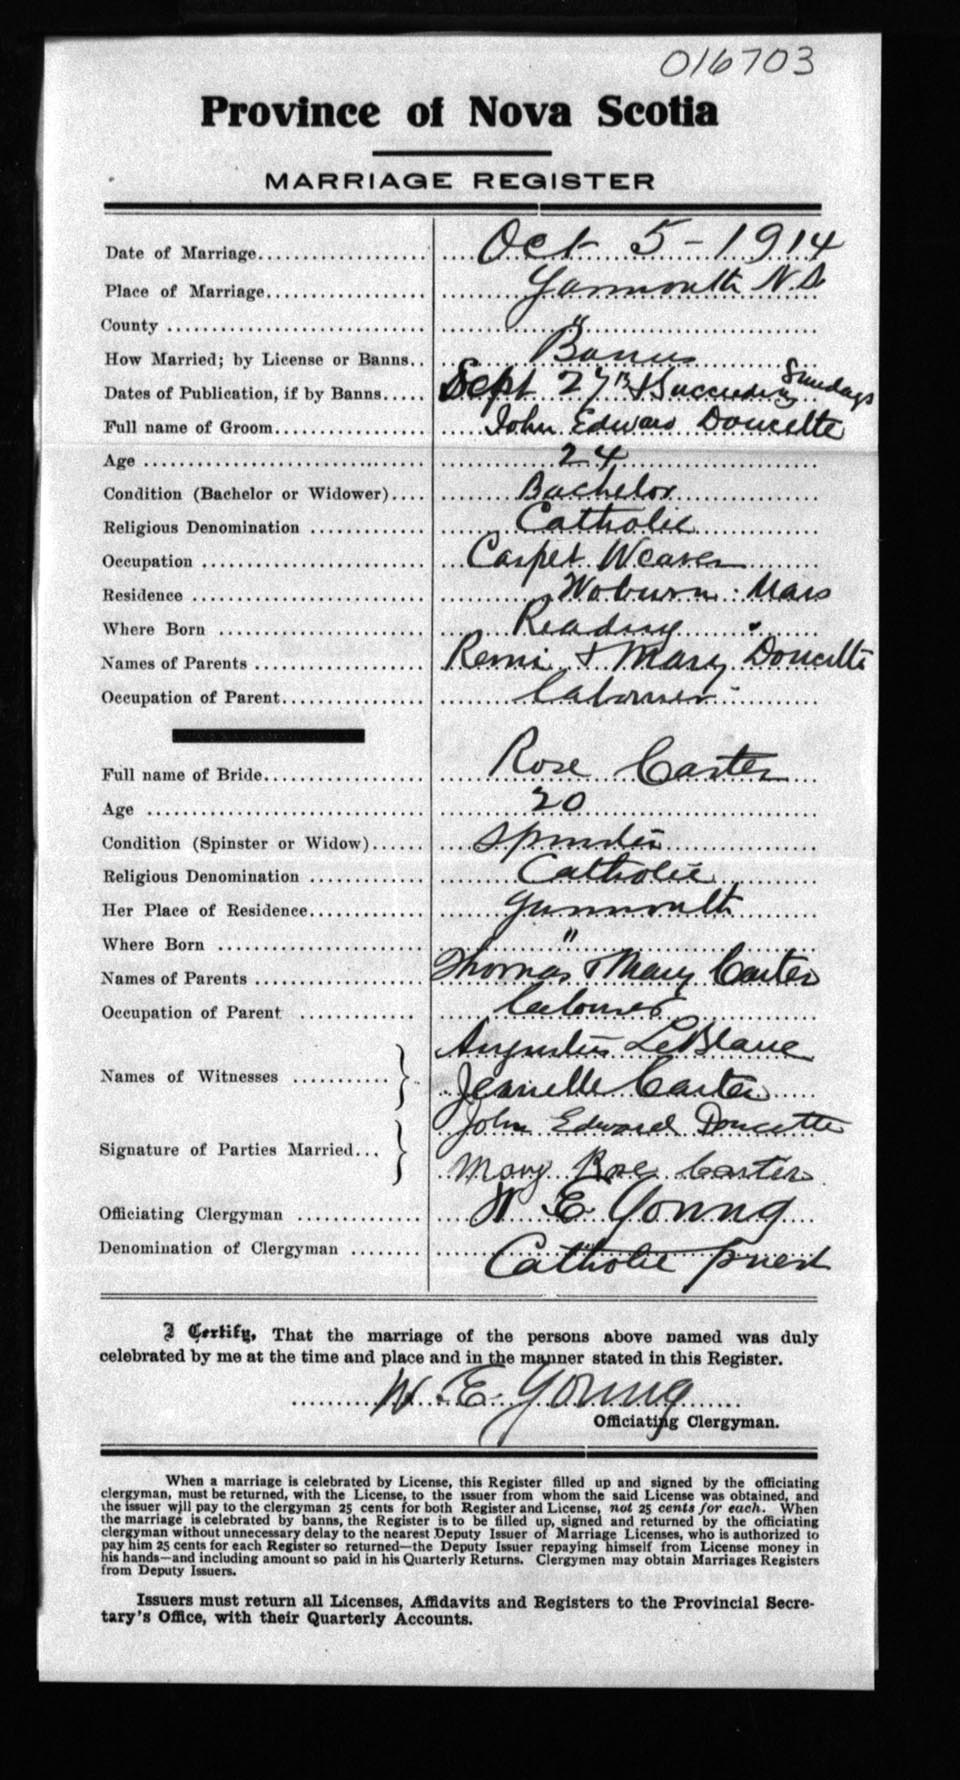 016703
Province of Nova Scotia
MARRIAGE REGISTER
Date of Marriage.................... Oct 5 - 1914
Place of Marriage.................. Yarmouth N.S
County .............................. "
How Married; by License or Banns.. Banns
Dates of Publication, if by Banns..... Sept 27th & Succeeding Sundays
Full name of Groom.................. John Edward Doucette
Age .................................. 24
Condition (Bachelor or Widower).... Bachelor
Religious Denomination .............. Catholic
Occupation .......................... Carpet Weaver
Residence ........................... Woburn Mass
Where Born ......................... Reading "
Names of Parents .................... Remi & Mary Doucette
Occupation of Parent................. Labourer
Full name of Bride................... Rose Carter
Age .................................. 20
Condition (Spinster or Widow)...... Spinster
Religious Denomination .............. Catholic
Her Place of Residence.............. Yarmouth
Where Born ......................... "
Names of Parents .................... Thomas & Mary Carter
Occupation of Parent ............. Labourer
Augustin LeBlanc
Names of Witnesses ........... }
Jeanelle Carter
John Edward Doucette
Signature of Parties Married... }
Mary Rose Carter
Officiating Clergyman .............. W E Young
Denomination of Clergyman ........ Catholic Priest
I Certify, That the marriage of the persons above named was duly
celebrated by me at the time and place and in the manner stated in this Register.
W. E. Young
Officiating Clergyman.
When a marriage is celebrated by License, this Register filled up and signed by the officiating
clergyman, must be returned, with the License, to the issuer from whom the said License was obtained, and
the issuer will pay to the clergyman 25 cents for both Register and License, not 25 cents for each. When
the marriage is celebrated by banns, the Register is to be filled up, signed and returned by the officiating
clergyman without unnecessary delay to the nearest Deputy Issuer of Marriage Licenses, who is authorized to
pay him 25 cents for each Register so returned—the Deputy Issuer repaying himself from License money in
his hands—and including amount so paid in his Quarterly Returns. Clergymen may obtain Marriages Registers
from Deputy Issuers.
Issuers must return all Licenses, Affidavits and Registers to the Provincial Secre-
tary's Office, with their Quarterly Accounts.